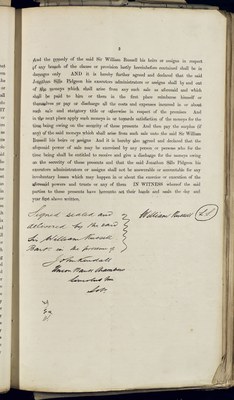 3
And the remedy of the said Sir William Russell his heirs or assigns in respect
of any breach of the clause or provision lastly hereinbefore contained shall be in
damages only AND it is hereby further agreed and declared that the said
Jonathan Sills Pidgeon his executors administrators or assigns shall by and out
of the moneys which shall arise from any such sale as aforesaid and which
shall be paid to him or them in the first place reimburse himself or
themselves or pay or discharge all the costs and expenses incurred in or about
such sale and assigning title or otherwise in respect of the premises And
in the next place apply such moneys in or towards satisfaction of the moneys for the
time being owing on the security of these presents And then pay the surplus (if
any) of the said moneys which shall arise from such sale unto the said Sir William
Russell his heirs or assigns And it is hereby also agreed and declared that the
aforesaid power of sale may be exercised by any person or persons who for the
time being shall be entitled to receive and give a discharge for the moneys owing
on the security of these presents and that the said Jonathan Sills Pidgeon his
executors administrators or assigns shall not be answerable or accountable for any
involuntary losses which may happen in or about the exercise or execution of the
aforesaid powers and trusts or any of them IN WITNESS whereof the said
parties to these presents have hereunto set their hands and seals the day and
year first above written.
Signed sealed and
delivered by the said
Sir William Russell
Bart in the presence of
William Russell (LS)
John Kendall